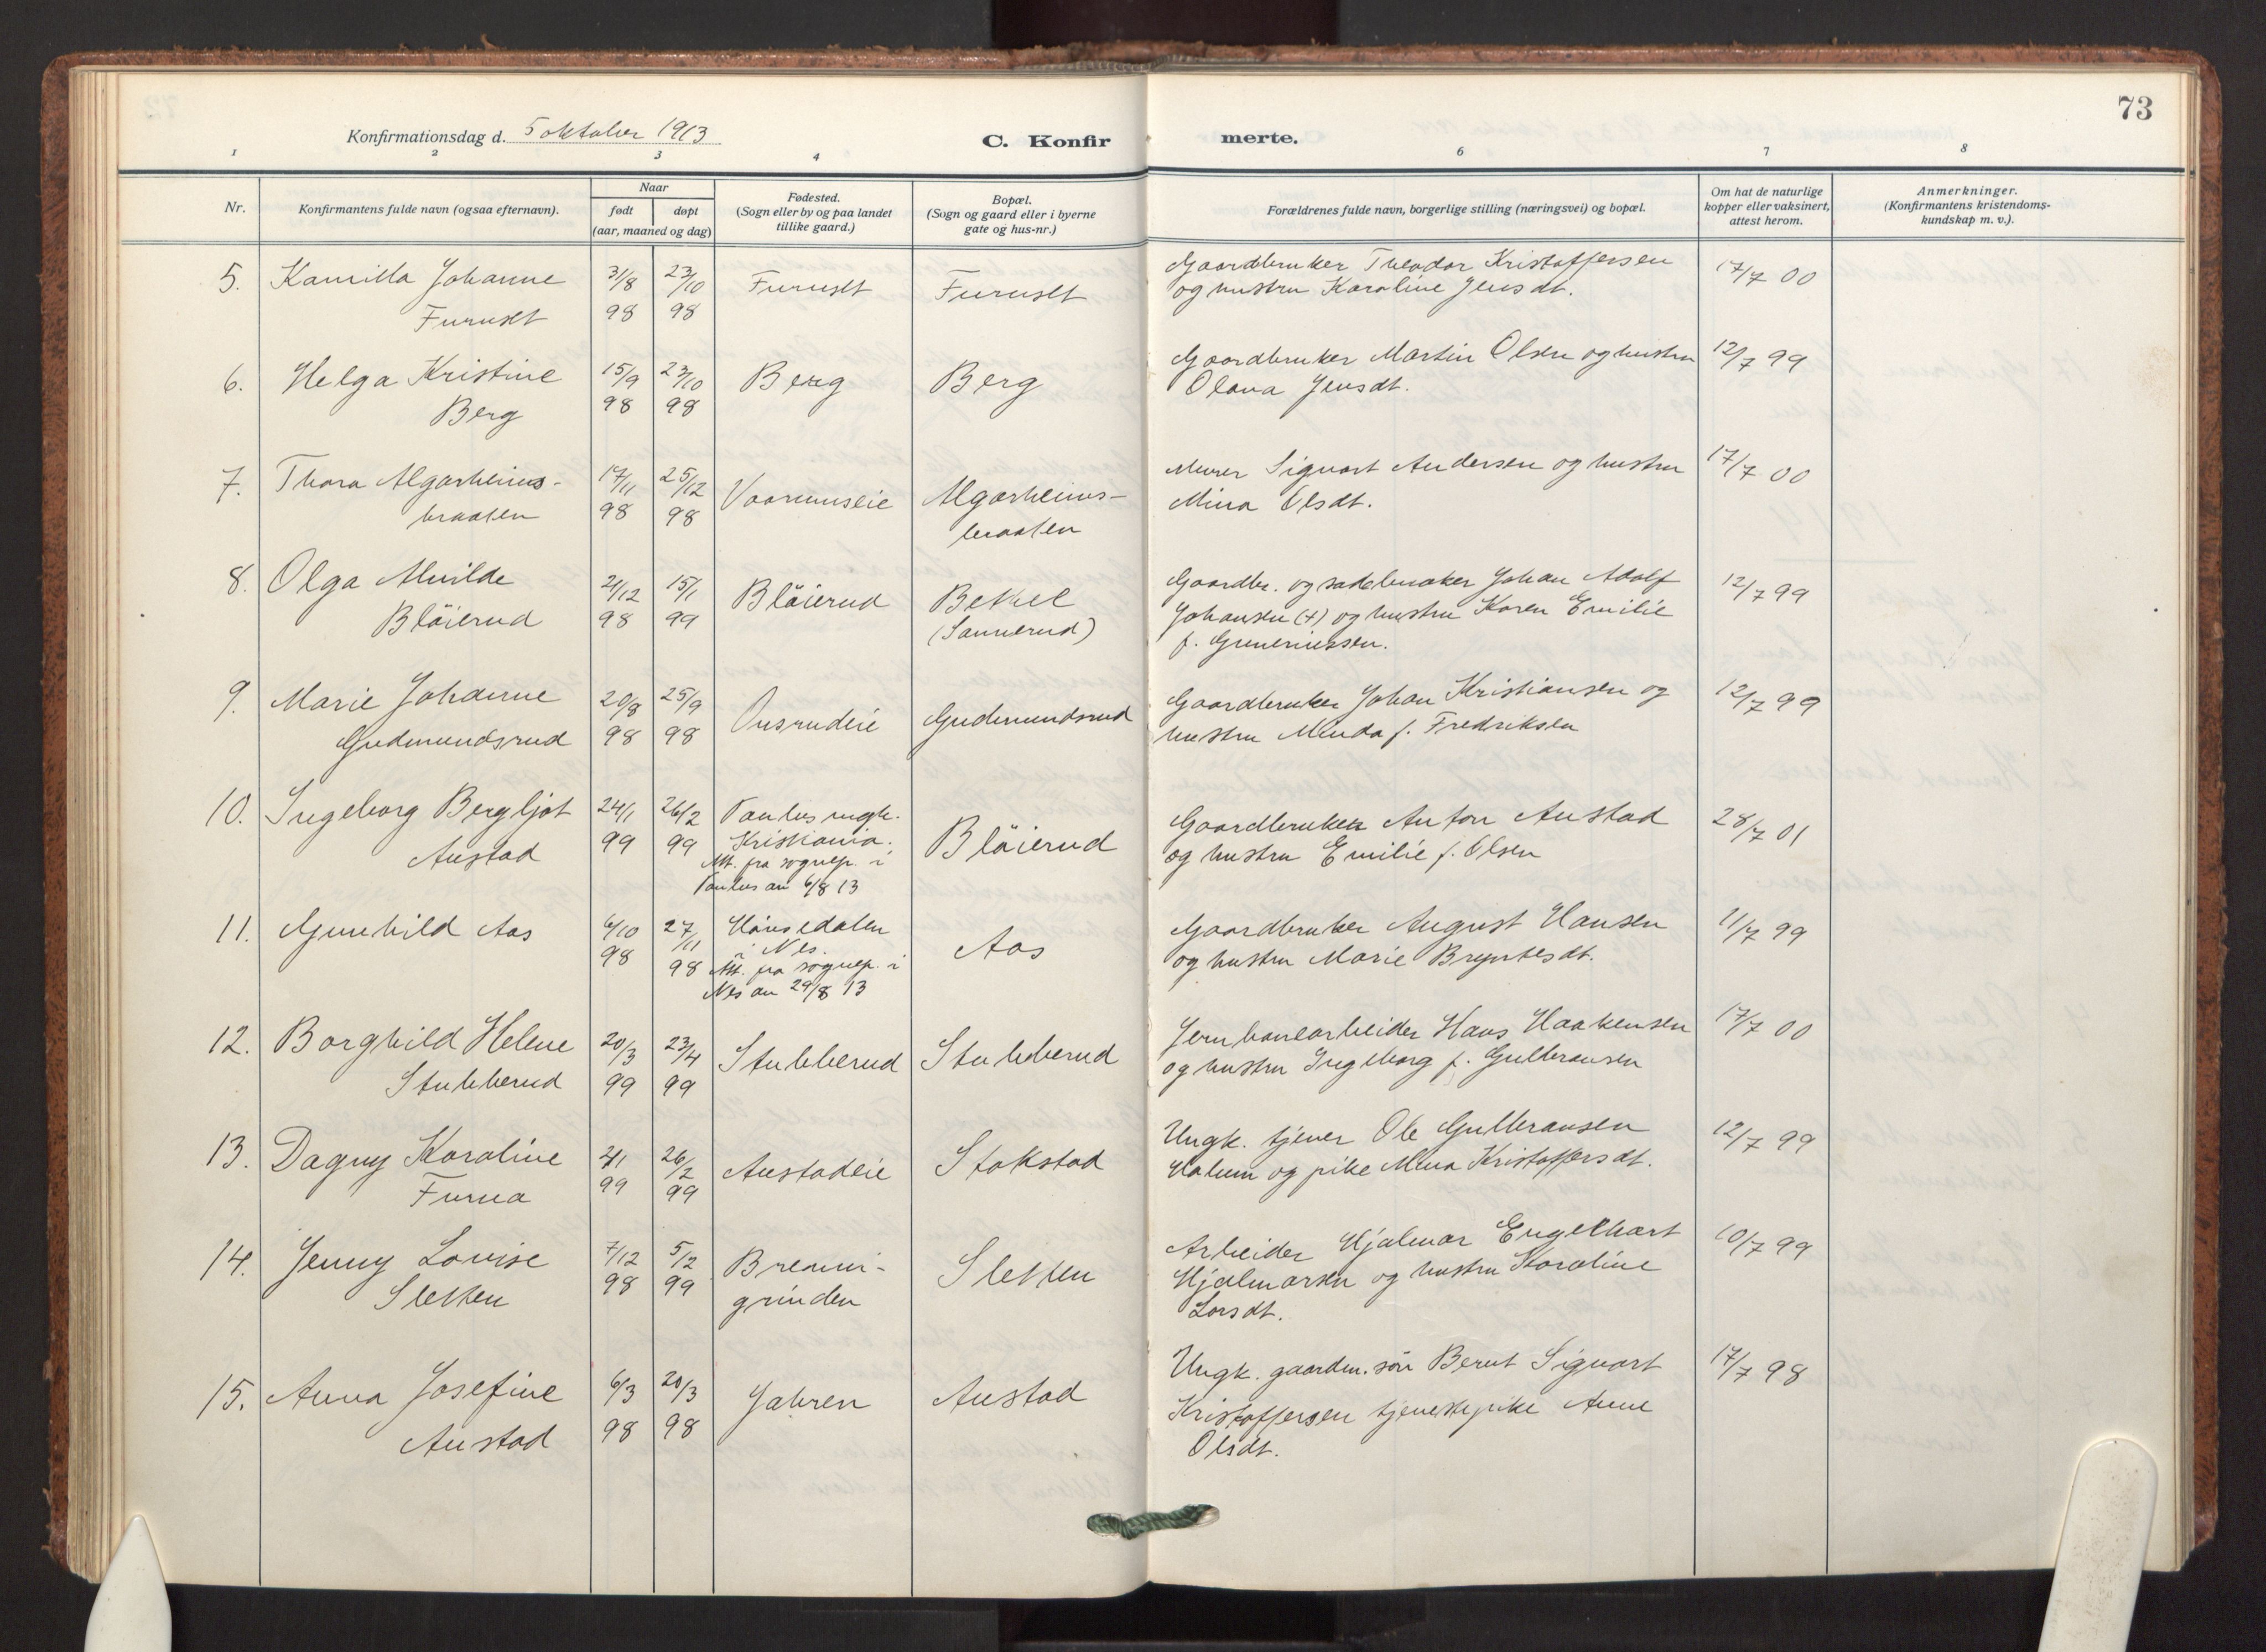 73
Konfirmationsdag d. 5 oktober 1913
C. Konfirmerte.
1 2 3 4 6 7 8
Nr.
Konfirmantens fulde navn (ogsaa efternavn).
Naar
født
døpt
(aar, maaned og dag)
Fødested.
(Sogn eller by og paa landet
tillike gaard.)
Bopæl.
(Sogn og gaard eller i byerne
gate og hus-nr.)
Forældrenes fulde navn, borgerlige stilling (næringsvei) og bopæl.
Om hat de naturlige
kopper eller vaksinert,
attest herom.
Anmerkninger.
(Konfirmantens kristendoms-
kundskap m. v.).
5. Kamilla Johanne
Furuset
31/8
98
23/10
98
Furuset
Furuset
Gaardbruker Theodor Kristoffersen
og hustru Karoline Jensdt.
17/7 00
6. Helga Kristine
Berg
15/9
98
23/10
98
Berg
Berg
Gaardbruker Martin Olsen og hustru
Olava Jensdt.
12/7 99
7. Thora Algarheims-
braaten
17/11
98
25/12
98
Vaarumseie
Algarheims-
braaten
Murer Sigvart Andersen og hustru
Mina Olsdt.
17/7 00
8. Olga Alvilde
Bløierud
21/12
98
15/1
99
Bløierud
Betel
(Sannerud)
Gaardbr. og sadelmaker Johan Adolf
Johansen (†) og hustru Karen Emilie
f. Gunerius​sen.
12/7 99
9. Marie Johanne
Gudmundsrud
20/8
98
25/9
98
Onsrudeie
Gudmundsrud
Gaardbruker Johan Kristiansen og
hustru Minda f. Fredriksen
12/7 99
10. Ingeborg Bergljot
Austad
24/1
99
26/2
99
Paulus mgh.
Kristiania.
Att. fra sognep. i
Paulus an 6/8 13
Bløierud
Gaardbruker Anton Austad
og hustru Emilie f. Olsen
28/7 01
11. Gunhild Aas
6/10
98
27/11
98
i Nes.
Att. fra sognep. i
Nes an 29/8 13
Aas
Gaardbruker August Hansen
og hustru Marie Bryntesdt.
11/7 99
12. Borghild Helene
Stubberud
20/3
99
23/4
99
Stubberud
Stubberud
Jernbanearbeider Hans Haakensen
og hustru Ingeborg f. Gulbransen
17/7 00
13. Dagny Karoline
Furua
99
26/2
99
Austadeie
Stokstad
Ungk. tjener Ole Gulbransen
Holum og pike Mina Kristoffersdt.
12/7 99
14. Jenny Lovise
Sletten
7/12
98
5/2
99
Bremni-
grinden
Sletten
Arbeider Hjalmar Engelhart
Hjalmarsen og hustru Karoline
Larsdt.
10/7 99
15. Anna Josefine
Austad
6/3
98
20/3
98
Jahren
Austad
Ungk. gaardm. søn Bernt Sigvart
Kristoffersen tjenestepike Anne
Olsdt.
17/7 98